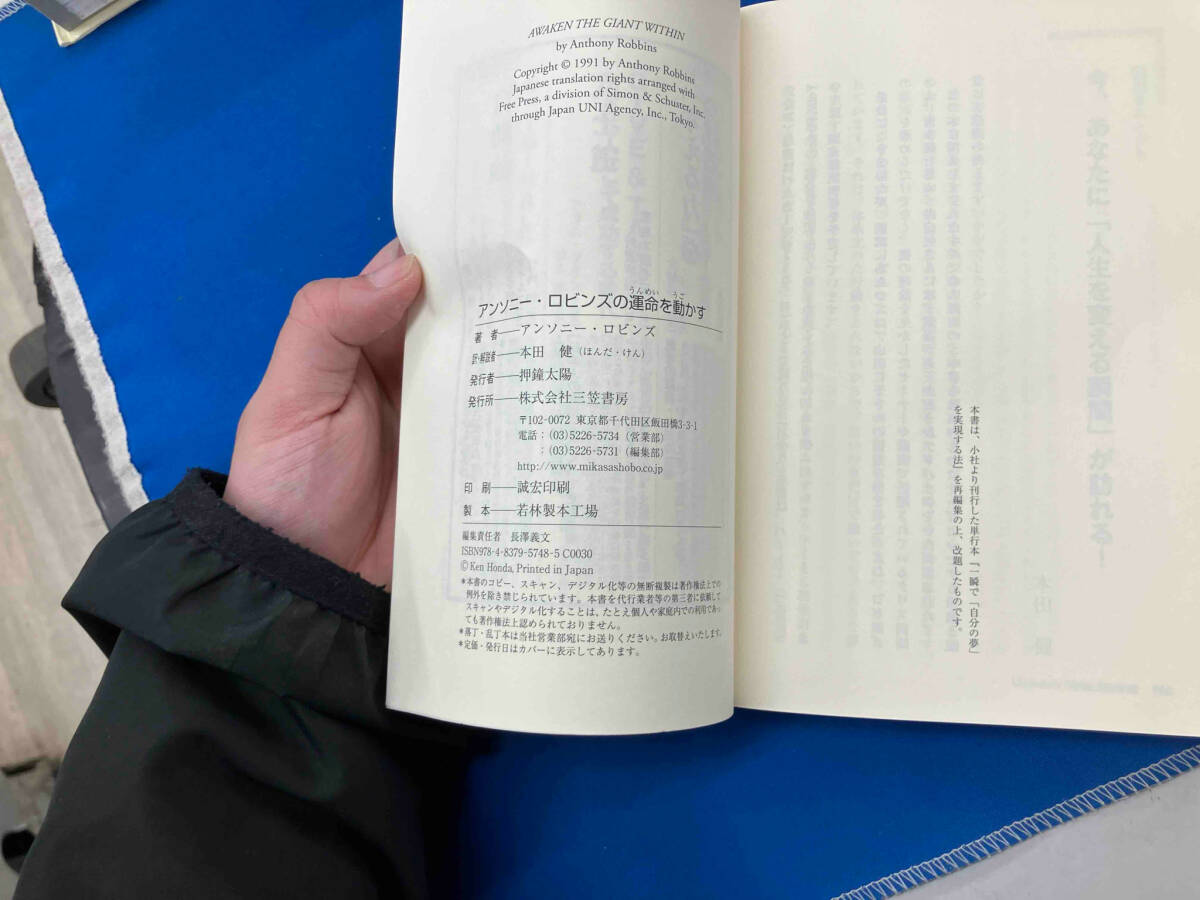 AWAKEN THE GIANT WITHIN
by Anthony Robbins
Copyright © 1991 by Anthony Robbins
Japanese translation rights arranged with
Free Press, a division of Simon & Schuster, Inc.
through Japan UNI Agency, Inc., Tokyo.
アンソニー・ロビンズの運命を動かす
うんめい うご
著 者──アンソニー・ロビンズ
訳・解説者──本田 健（ほんだ・けん）
発行者──押鐘太陽
発行所──株式会社三笠書房
〒102-0072 東京都千代田区飯田橋3-3-1
電話：(03)5226-5734（営業部）
：(03)5226-5731（編集部）
http://www.mikasashobo.co.jp
印 刷──誠宏印刷
製 本──若林製本工場
編集責任者 長澤義文
ISBN978-4-8379-5748-5 C0030
© Ken Honda, Printed in Japan
＊本書のコピー、スキャン、デジタル化等の無断複製は著作権法上での
例外を除き禁じられています。本書を代行業者等の第三者に依頼して
スキャンやデジタル化することは、たとえ個人や家庭内での利用であっ
ても著作権法上認められておりません。
＊落丁・乱丁本は当社営業部宛にお送りください。お取替えいたします。
＊定価・発行日はカバーに表示してあります。
本書は、小社より刊行した単行本『一瞬で「自分の夢」
を実現する法』を再編集の上、改題したものです。